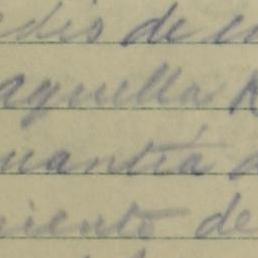 edis de c
aquella R
uantía d
miento de